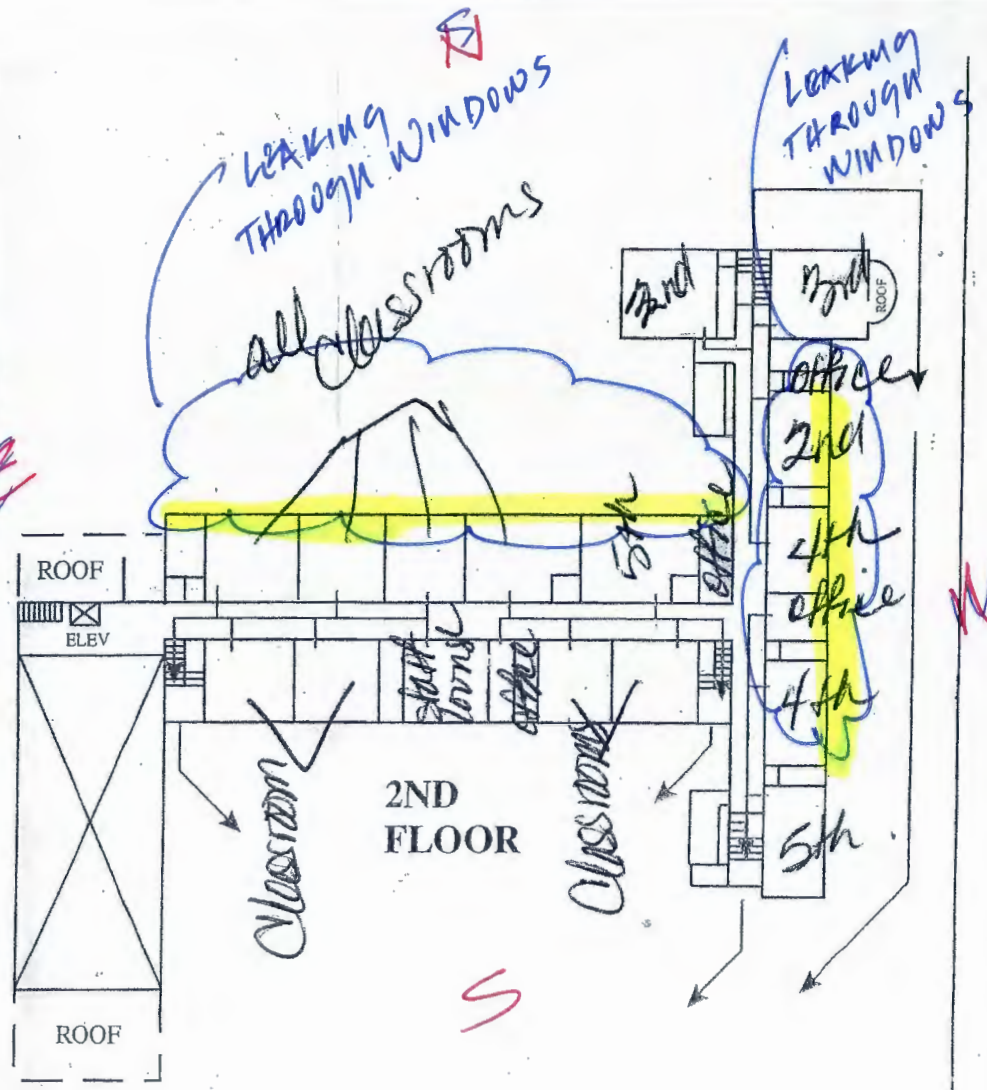 N
LEAKING
THROUGH WINDOWS
LEAKING
THROUGH
WINDOWS
all Classrooms
3rd
3rd
ROOF
office
2nd
4th
office
4th
5th
5th
office
ROOF
ELEV
Staff
Office
Classroom
Classrooms
2ND
FLOOR
S
ROOF